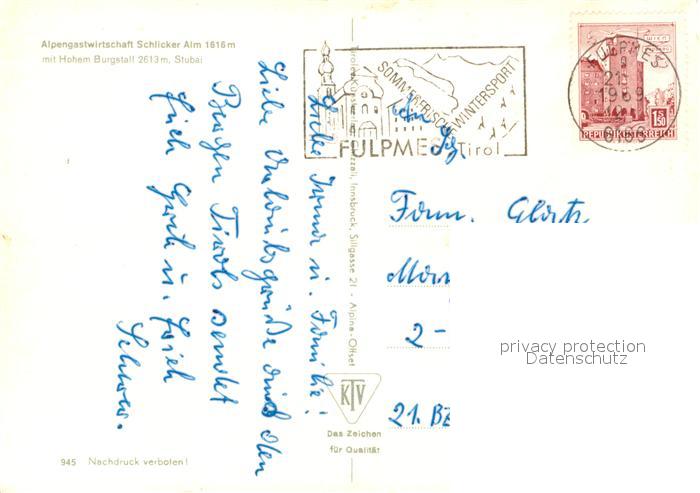 Alpengastwirtschaft Schlicker Alm 1616m
mit Hohem Burgstall 2613m, Stubai
SOMMERFRISCHE
WINTERSPORT
FULPMES Tirol
FULPMES
1969
6166
WIEN
1.50
REPUBLIK ÖSTERREICH
Liebe Irma u. Familie!
Liebe Urlaubsgrüße aus den
Bergen Tirols sendet
Euch Gerti u. Erich
Innsbruck, Sillgasse 21 - Alpina-Offset
An
Fam.
2-
21. BZ
KTV
Das Zeichen
für Qualität
945 Nachdruck verboten!
privacy protection
Datenschutz